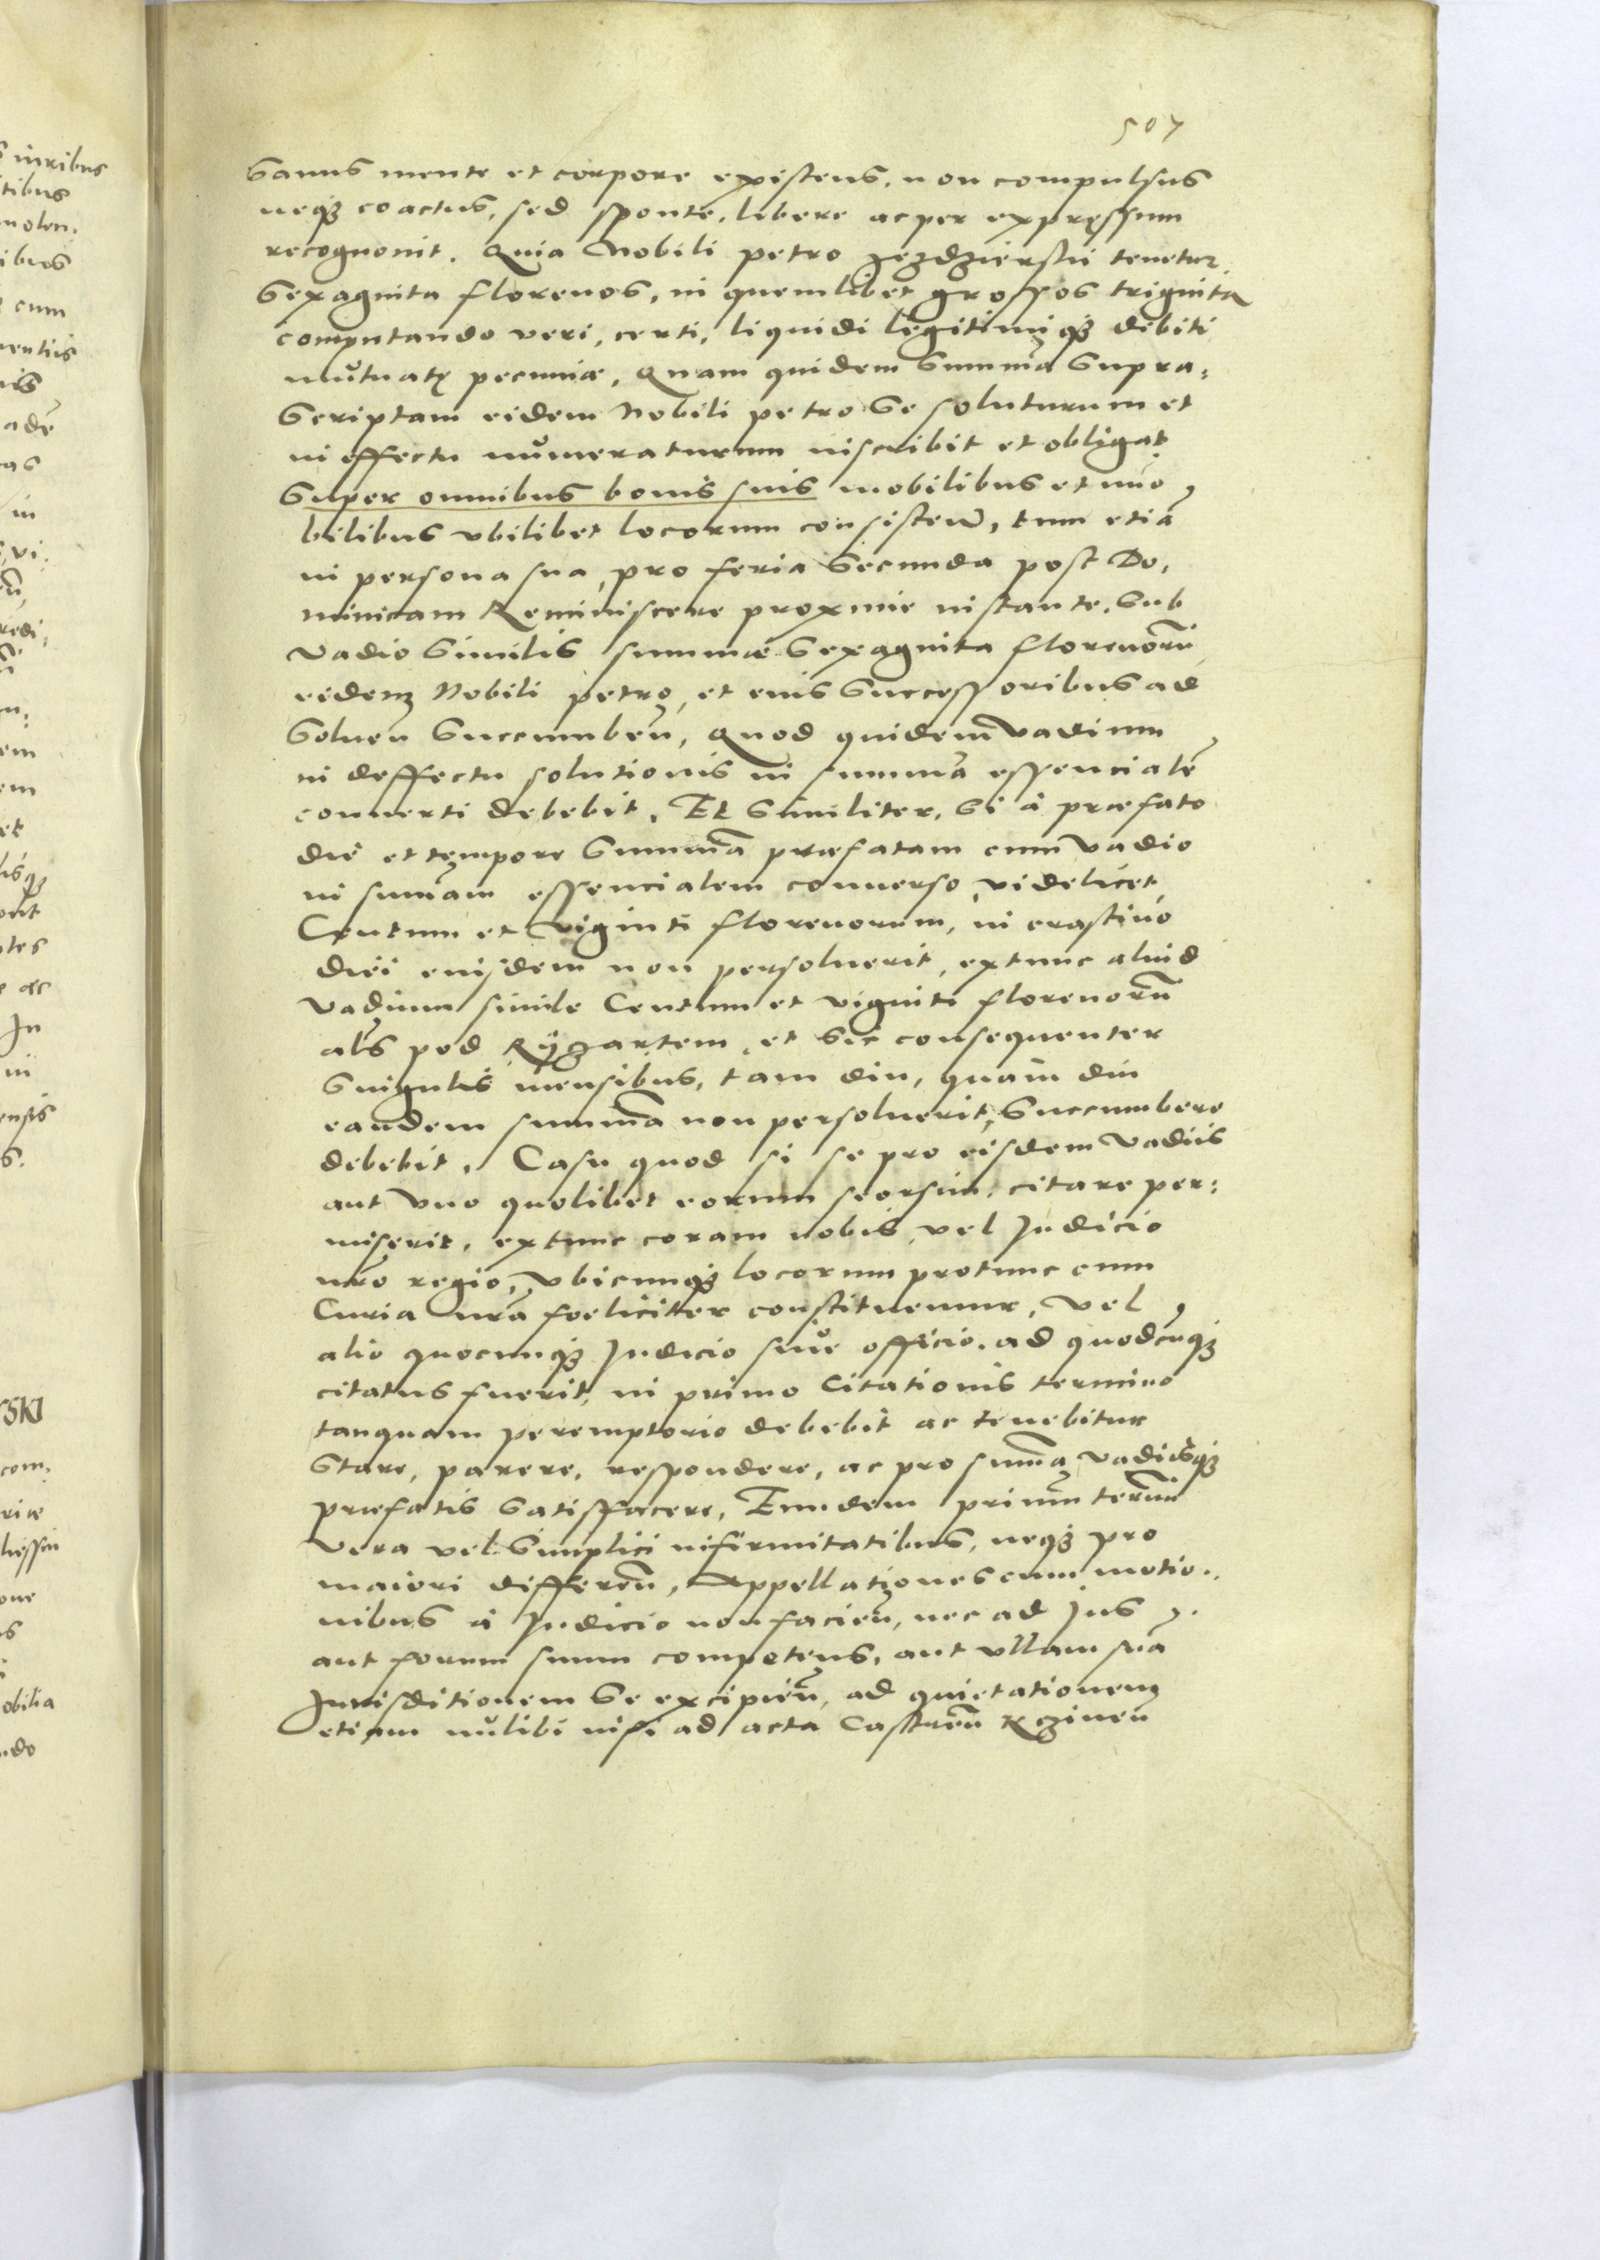 507
sanus mente et corpore existens, non compulsus
neq3 coactus, sed sponte, libere ac per expressum
recognouit. Quia Nobili petro tenetur
sexaginta florenos, in quemlibet grossos triginta
computando veri, certi, liquidi legitimiq3 debiti
mutuatę pecuniæ, Quam quidem summā supra=
scriptam eidem Nobili petro se soluturum et
in effectu numeraturum inscribit et obligat
super omnibus bonis suis mobilibus et imo
bilibus vbilibet locorum consisteñ, tum etiā
in persona sua, pro feria secunda post Do,
minicam Reminiscere proxime instante, sub
vadio similis summæ sexaginta florenorū
eidem Nobili petro, et eius successoribus ad
solueñ succumbeñ, Quod quidem vadium
in deffectu solutionis in summā essencialē
conuerti debebit. Et similiter, si à præfato
die et tempore summā præfatam cum vadio
in sumam essencialem conuerso, videlicet
Centum et viginti florenorum, in crastino
diei eiusdem non persoluerit, extunc aliud
vadium simile Centum et viginti florenorū
als pod Rÿzartem, et sic consequenter
singulis mensibus, tam diu, quam diu
eandem summā non persoluerit, succumbere
debebit. Casu quod si se pro eisdem vadiis
aut vno quolibet eorum seorsim, citare per=
miserit, extunc coram nobis, vel Judicio
nro regio, vbicunq3 locorum protunc cum
Curia nra foeliciter constituemur, vel
alio quocunq3 Judicio siue officio, ad quodcūq3
citatus fuerit, in primo Citationis termino
tanquam peremptorio debebit ac tenebitur
stare, parere, respondere, ac pro summa, vadiisq3
præfatis satisfacere, Eundem primum termīn
vera vel simplici infirmitatibus, neq3 pro
maiori differeñ, Appellationes cum motio..
nibus à Judicio non facieñ, nec ad Jus
aut forum suum competens, aut vllam suā
Jurisditionem se excipieñ, ad quietationem
etiam nulibi nisi ad acta Castreñ

iuribus
tibus
molen.
ibus
cum
adē
cas
in
vi.
redi,
em
em
et
ont
ntes
ac
In
in
ensis
s.
RSKI
com,
riæ
one
s
obilia
ndo